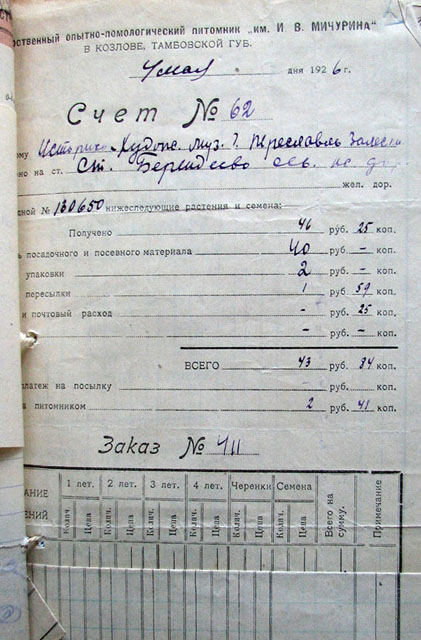 рственный опытно-помологический питомник „им. И В. МИЧУРИНА"
В КОЗЛОВЕ, ТАМБОВСКОЙ ГУБ.
4 мая дня 1926 г.
Счет № 62
му Историко-Худож. Муз. г. Переславль Залесск.
но на ст. Ст. Берендеево Сев.
жел. дор.
дной № 130650 нижеследующие растения и семена:
Получено 46 руб. 25 коп.
ь посадочного и посевного материала 40 руб. – коп.
упаковки 2 руб. – коп.
пересылки 1 руб. 59 коп.
и почтовый расход - руб. 25 коп.
– руб. – коп.
ВСЕГО 43 руб. 84 коп.
латеж на посылку руб. коп.
а питомником 2 руб. 41 коп.
Заказ № 411
АНИЕ 1 лет. 2 лет. 3 лет. 4 лет. Черенки Семена Всего на сумму. Примечание
ЕНИЙ Колич. Цена Колич. Цена Колич. Цена Колич. Цена Колич. Цена Колич. Цена